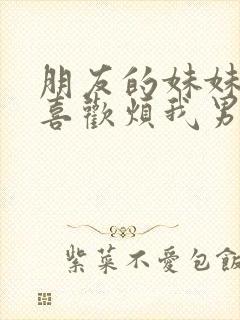 朋友的妹妹
喜歡煩我男
紫菜不愛包飯